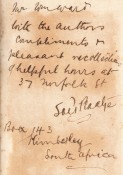 Mr Wm Ward
With the authors
Compliments &
pleasant recollection
of helpful hours at
37 Norfolk St
Sol Plaatje
Box 143
Kimberley
South Africa